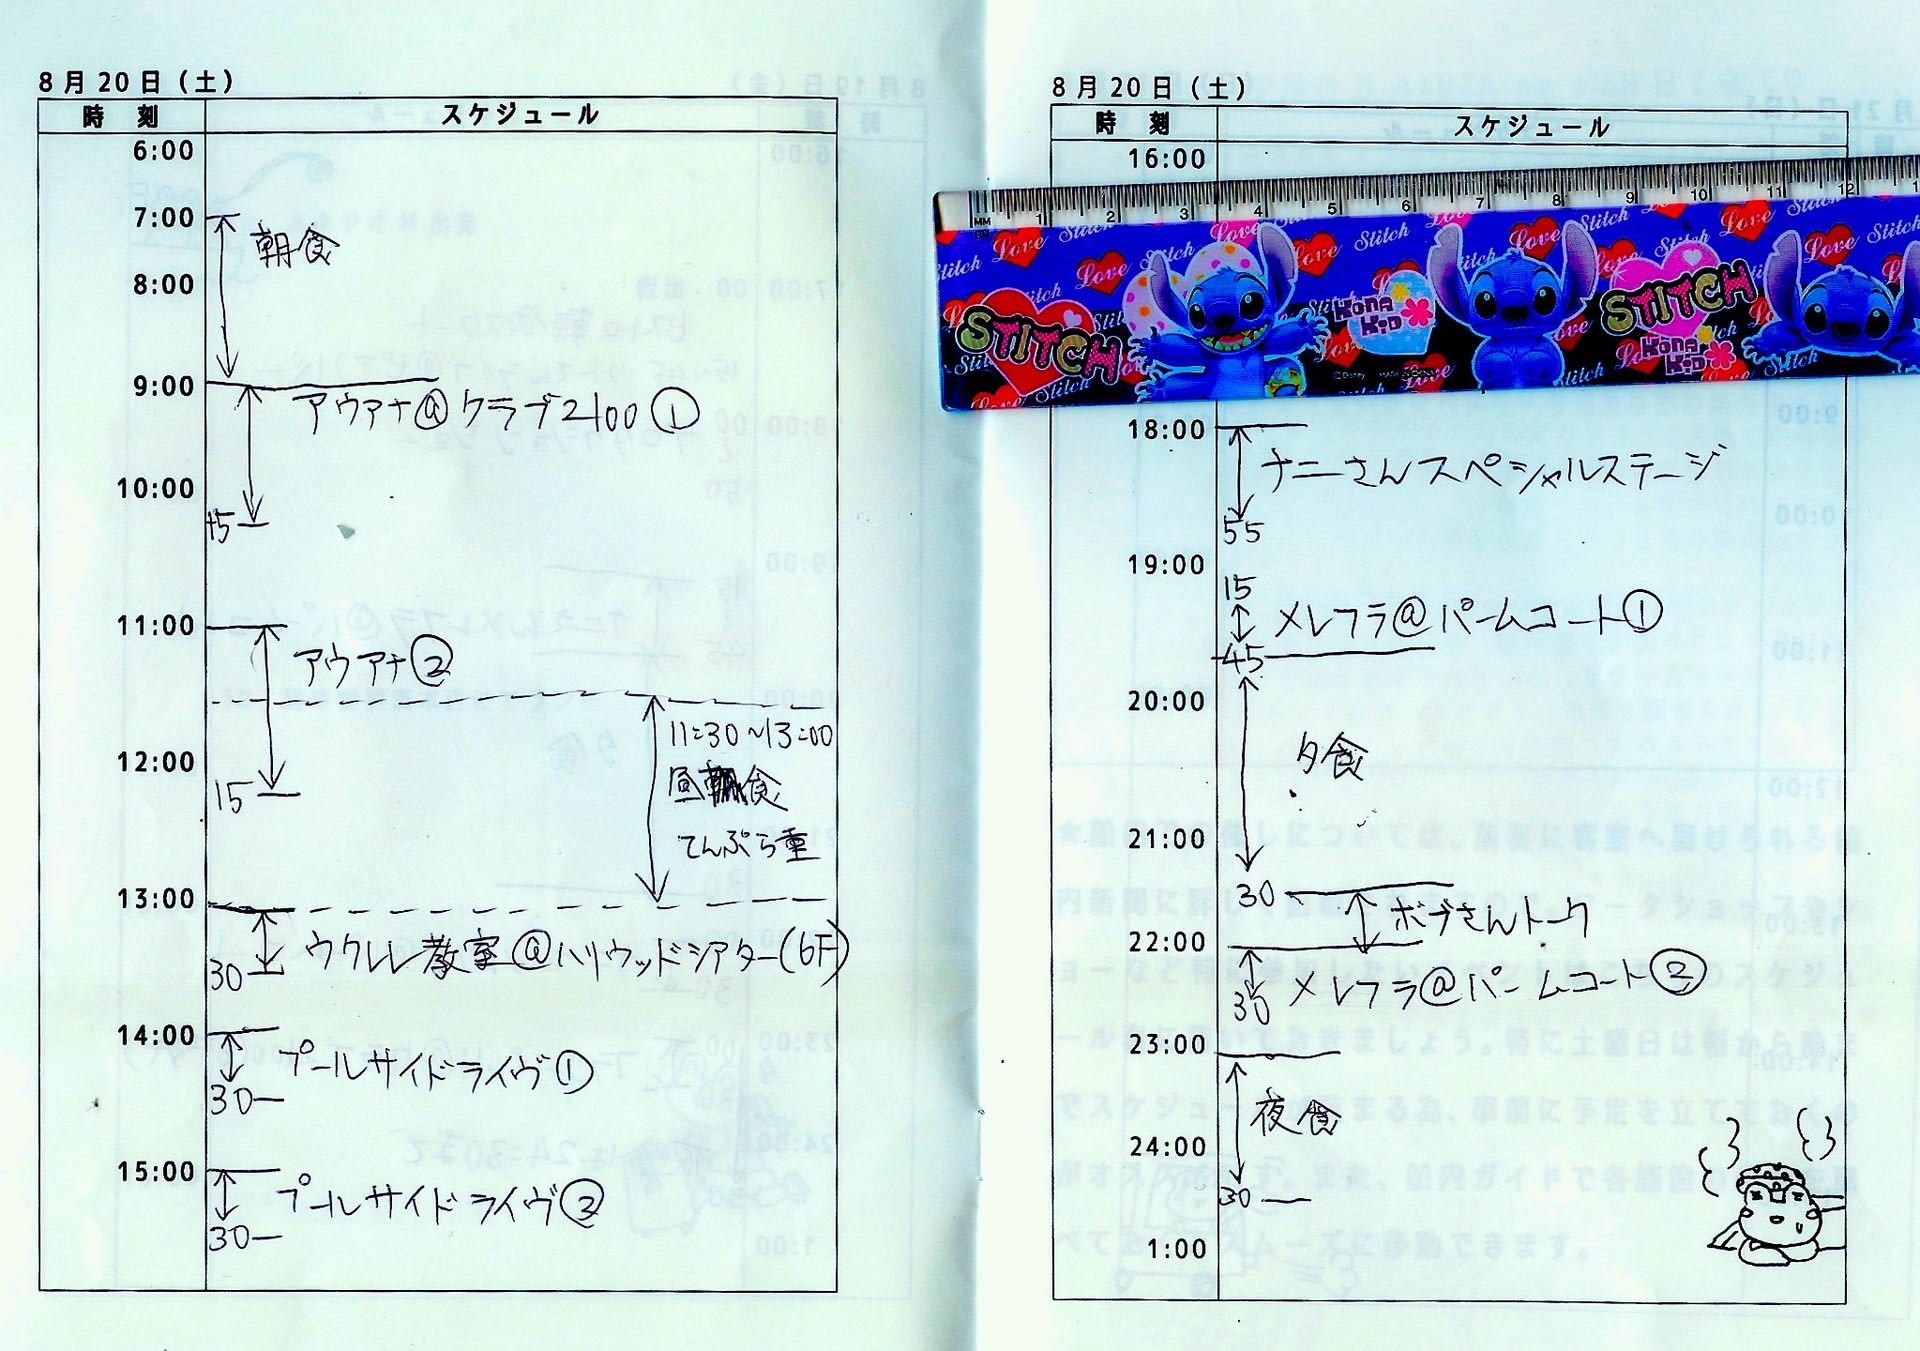 8月20日(土)
時 刻
スケジュール
6:00
7:00
朝食
8:00
9:00
アウアナ@クラブ2100①
10:00
15
11:00
アウアナ②
11:30~13:00
昼食
てんぷら重
12:00
15
13:00
ウクレレ教室@ハリウッドシアター(6F)
30
14:00
プールサイドライヴ①
30
15:00
プールサイドライヴ②
30
8月20日(土)
時 刻
スケジュール
16:00
MM
1 2 3 4 5 6 7 8 9 10 11 12
CM
Love Stitch Love Stitch Love Stitch Love Stitch Love Stitch
STITCH
KONA KID
STITCH
KONA KID
©Disney MADE IN CHINA
18:00
ナニーさんスペシャルステージ
55
19:00
15
メレフラ@パームコート①
45
20:00
夕食
21:00
30
ボブさんトーク
22:00
メレフラ@パームコート②
30
23:00
夜食
24:00
30
1:00